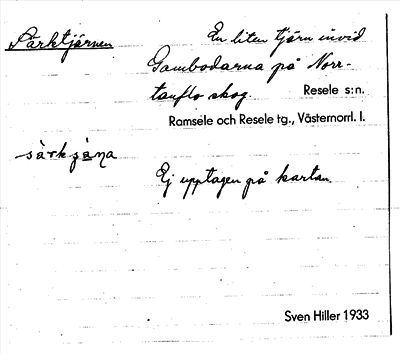 Särktjärnen
En liten tjärn invid
Gambodarna på Norr-
tanflo skog. Resele s:n.
Ramsele och Resele tg., Västernorrl. l.
Ej upptagen på kartan.
Sven Hiller 1933